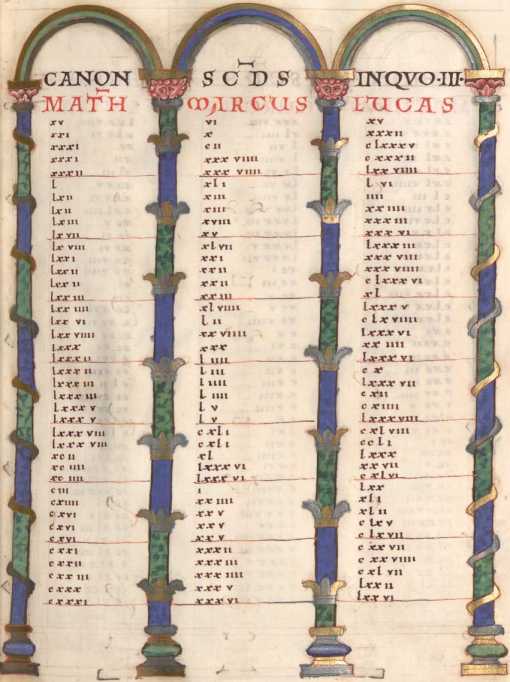 CANON SCDS INQVO·III·
MATH MARCUS LUCAS
xv vi xv
xxi x xxxii
xxxi cii clxxxv
xxxi xxxviiii cxxxiii
xxxii xxxviiii lxxviiii
l xli lvi
lxii xiii iiii
lxii xiiii xxiiii
lxiii xviii xxxiii
lxvii xv xxxvi
lxviiii xlvii lxxxiii
lxxi xxi xxxviii
lxxii xxii xxxviiii
lxxii xxii clxxxvi
lxxiii xxiii xl
lxxiiii xlviiii lxxxv
lxxvi lii clxviiii
lxxviiii xxviiii lxxxvi
lxxx xxx xliiii
lxxxii liii lxxxvi
lxxxii liiii cx
lxxxiii liiii lxxxvii
lxxxiii liiii cxii
lxxxv lv cxiiii
lxxxv lv lxxxviii
lxxxviii cxli cxlviii
lxxxviii cxli ccli
xcii xl lxxx
xciiii lxxxvi xcvii
xciiii lxxxvi cxlvi
ciii i lxx
cxiiii xxiiii xli
cxvi xxv xlii
cxvi xxv clxv
cxvi xxv clxvii
cxxi xxxii cxxvii
cxxii xxxiii cxxviiii
cxxiii xxxiiii cxlvii
cxxx xxxv lxxii
cxxxi xxxvi lxxvi